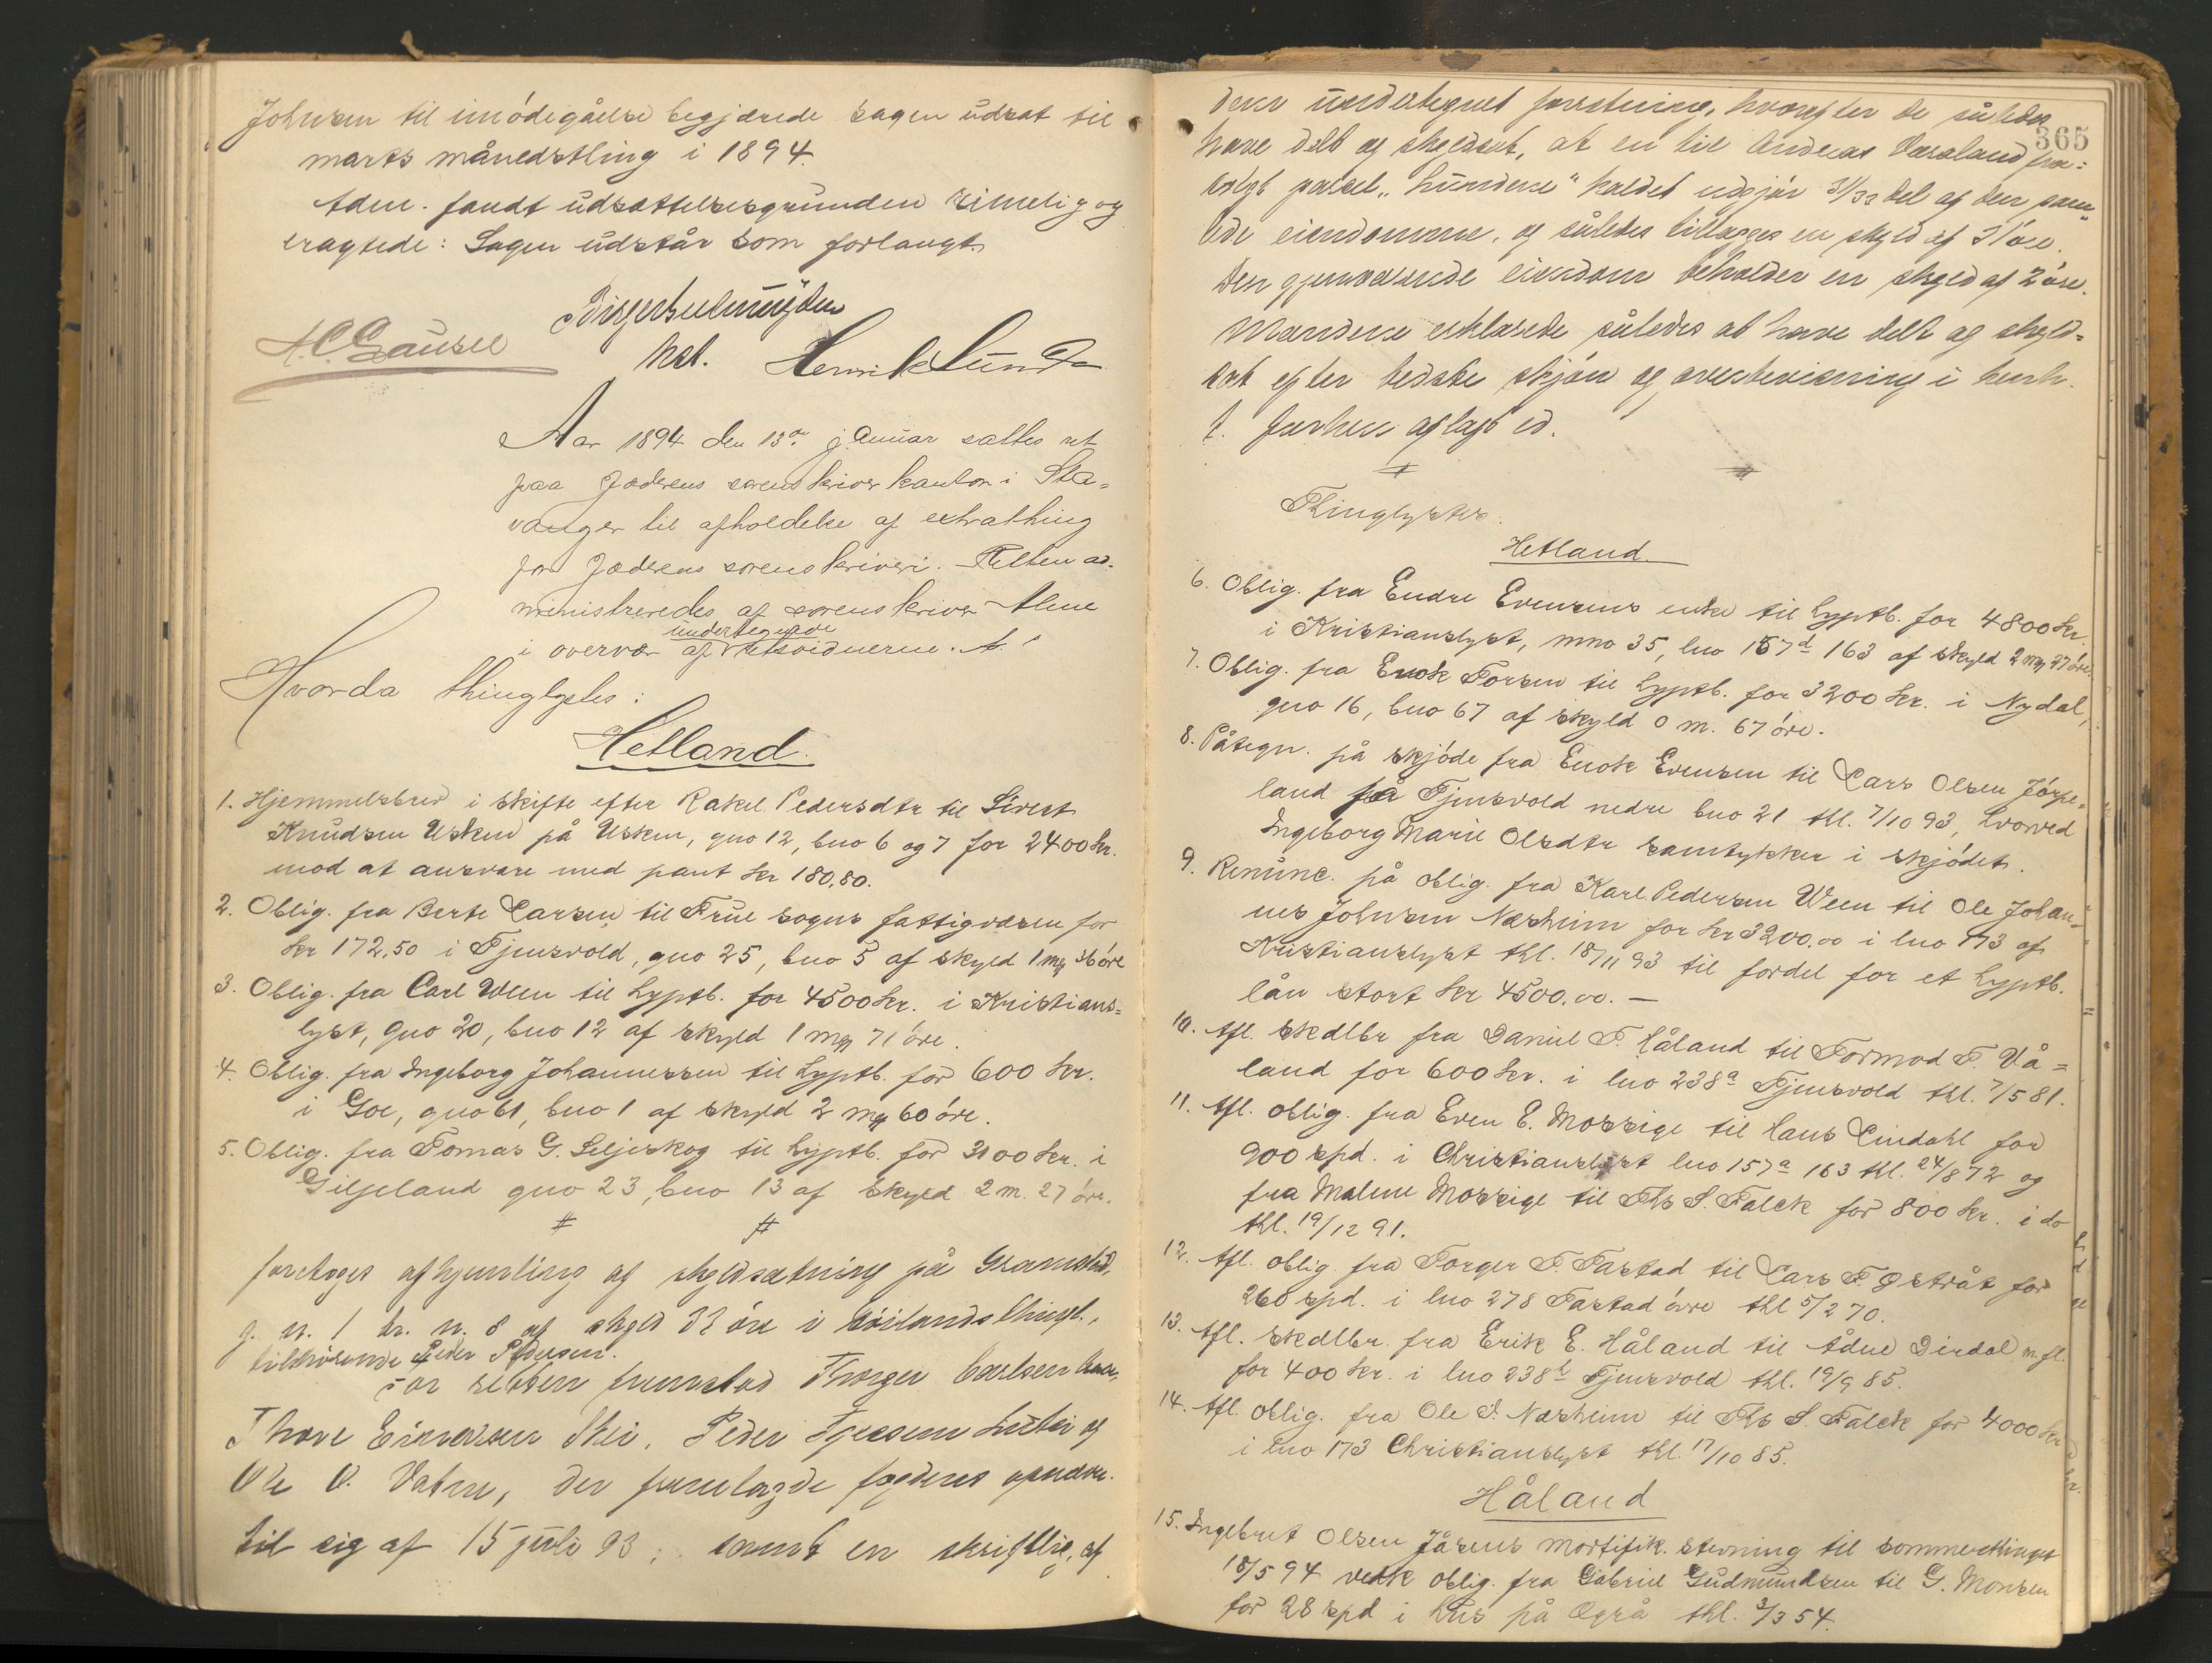 Johnsen til imødegåelse begjærede sagen udsat til
marts månedstling i 1894.
Adm. fandt udsættelsesgrunden rimelig og
eragtede: Sagen udstår som forlangt.
kst. Henrik Lund
A.C. Gausel
Aar 1894 den 13de januar sattes ret
paa Jæderens sorenskriverkontor i Sta=
vanger til afholdelse af extrathing
for Jæderens sorenskriveri. Retten ad=
ministreredes af sorenskriver Alme
undertegnede
i overvær af retsvidnerne.
Hvorda thinglystes:
Hetland.
1. Hjemmelsbrev i skifte efter Rakel Pedersdtr til Sivert
Knudsen Usken på Usken, gno 12, bno 6 og 7 for 2400 kr.
mod at ansvare med pant kr 180,80.
2. Oblig. fra Berte Larsen til Frue sogns fattigvæsen for
kr 172,50 i Tjensvold, gno 25, bno 5 af skyld 1 mk 36 øre
3. Oblig. fra Carl Ween til hyptb. for 4500 kr. i Kristians=
lyst, gno 20, bno 12 af skyld 1 mk 71 øre.
4. Oblig. fra Ingeborg Johannessen til hyptb. for 600 kr.
i Goe, gno 61, bno 1 af skyld 2 mk 60 øre.
5. Oblig. fra Tomas G. Seljeskog til hyptb. for 3100 kr. i
Giljeland gno 23, bno 13 af skyld 2 m. 27 øre.
# #
foretoges afhjemling af skyldsætning på Gramstad,
g. n. 1 br. n. 8 af skyld 33 øre i Høilands thingl.,
tilhørende Peder Pedersen.
For retten fremstod Thorger Carlsen
Thore Einarsen Skei, Peder Tjersen Lutsi og
Ole O. Vatne, der fremlagde fogdens opnævn.
til sig af 15 juli 93; samt en skriftlig, af
365
dem undertegnet forretning, hvorefter de således
have delt og skyldsat, at en til Andreas Varaland fra=
solgt parcel „hundene“ kaldet udgjør 31/33 del af den sam=
lede eiendomme, og således tillægges en skyld af 31 øre.
Den gjenværende eiendom beholder en skyld af 2 øre.
Mændene erklærede således at have delt og skyld=
sat efter bedste skjøn og overbevisning i henh.
t. forhen aflagt ed.
# #
Thinglystes:
Hetland.
6. Oblig. fra Endre Evensens enke til hyptb. for 4800 kr.
i Kristianslyst, mno 35, lno 157d 163 af skyld 2 mk 27 øre.
7. Oblig. fra Enok Torsen til hyptb. for 3200 kr. i Nydal,
gno 16, bno 67 af skyld 0 m. 67 øre.
8. Påtegn. på skjøde fra Enok Evensen til Lars Olsen Jørpe=
land på Tjensvold nedre bno 21 thl. 7/10 93, hvorved
Ingeborg Marie Olsdtr samtykker i skjødet.
9. Renunc. på oblig. fra Karl Pedersen Ween til Ole Johan=
nes Johnsen Nærheim for kr 3200.00 i lno 173 af
Kristianslyst thl. 18/11 93 til fordel for et hyptb.
lån stort kr 4500.00. —
10. Afl. skdlbr fra Daniel T. Håland til Tormod T. Vå=
land for 600 kr. i lno 238a Tjensvold thl. 7/5 81.
11. Afl. oblig. fra Even E. Mossige til Hans Lindahl for
900 spd. i Christianslyst lno 157a 163 thl. 24/8 72 og
fra Malene Mossige til Ths S. Falck for 800 kr. i do
thl. 19/12 91.
12. Afl. oblig. fra Torger T. Tastad til Lars T. Østråt for
260 spd. i lno 278 Tastad øvre thl 5/2 70.
13. Afl. skdlbr. fra Erik E. Håland til Ådne Dirdal m. fl.
for 400 kr. i lno 238b Tjensvold thl. 19/9 85.
14. Afl. oblig. fra Ole J. Nærheim til Ths S. Falck for 4000 kr
i lno 173 Christianslyst thl. 17/10 85.
Håland
15. Ingebret Olsen Jåsens mortifik. stevning til sommerthinget
18/5 94 vedk oblig. fra Gabriel Gudmundsen til G. Monsen
for 28 spd i hus på Ogrå thl. 3/3 54.